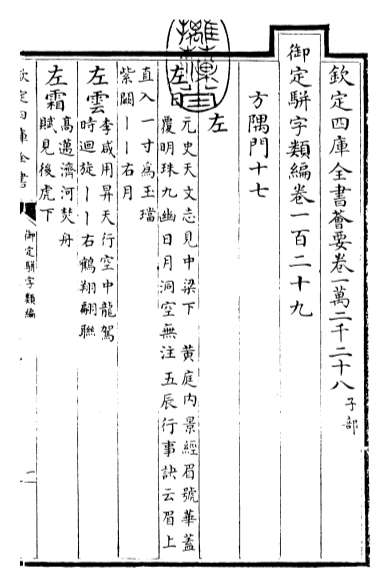 欽定四庫全書薈要卷一萬二千二十八 子部
御定駢字類編卷一百二十九
方隅門十七
左
左日 元史天文志見中梁下 黃庭内景經眉號華蓋
覆明珠九幽日月洞空無注五辰行事訣云眉上
直入一寸為玉璫
紫闕丨丨右月
左雲 李咸用昇天行空中龍駕
時迴旋丨丨右鶴翔翩聯
左霜 高邁濟河焚舟
賦見後虎下
欽定四庫全書
御定駢字類編